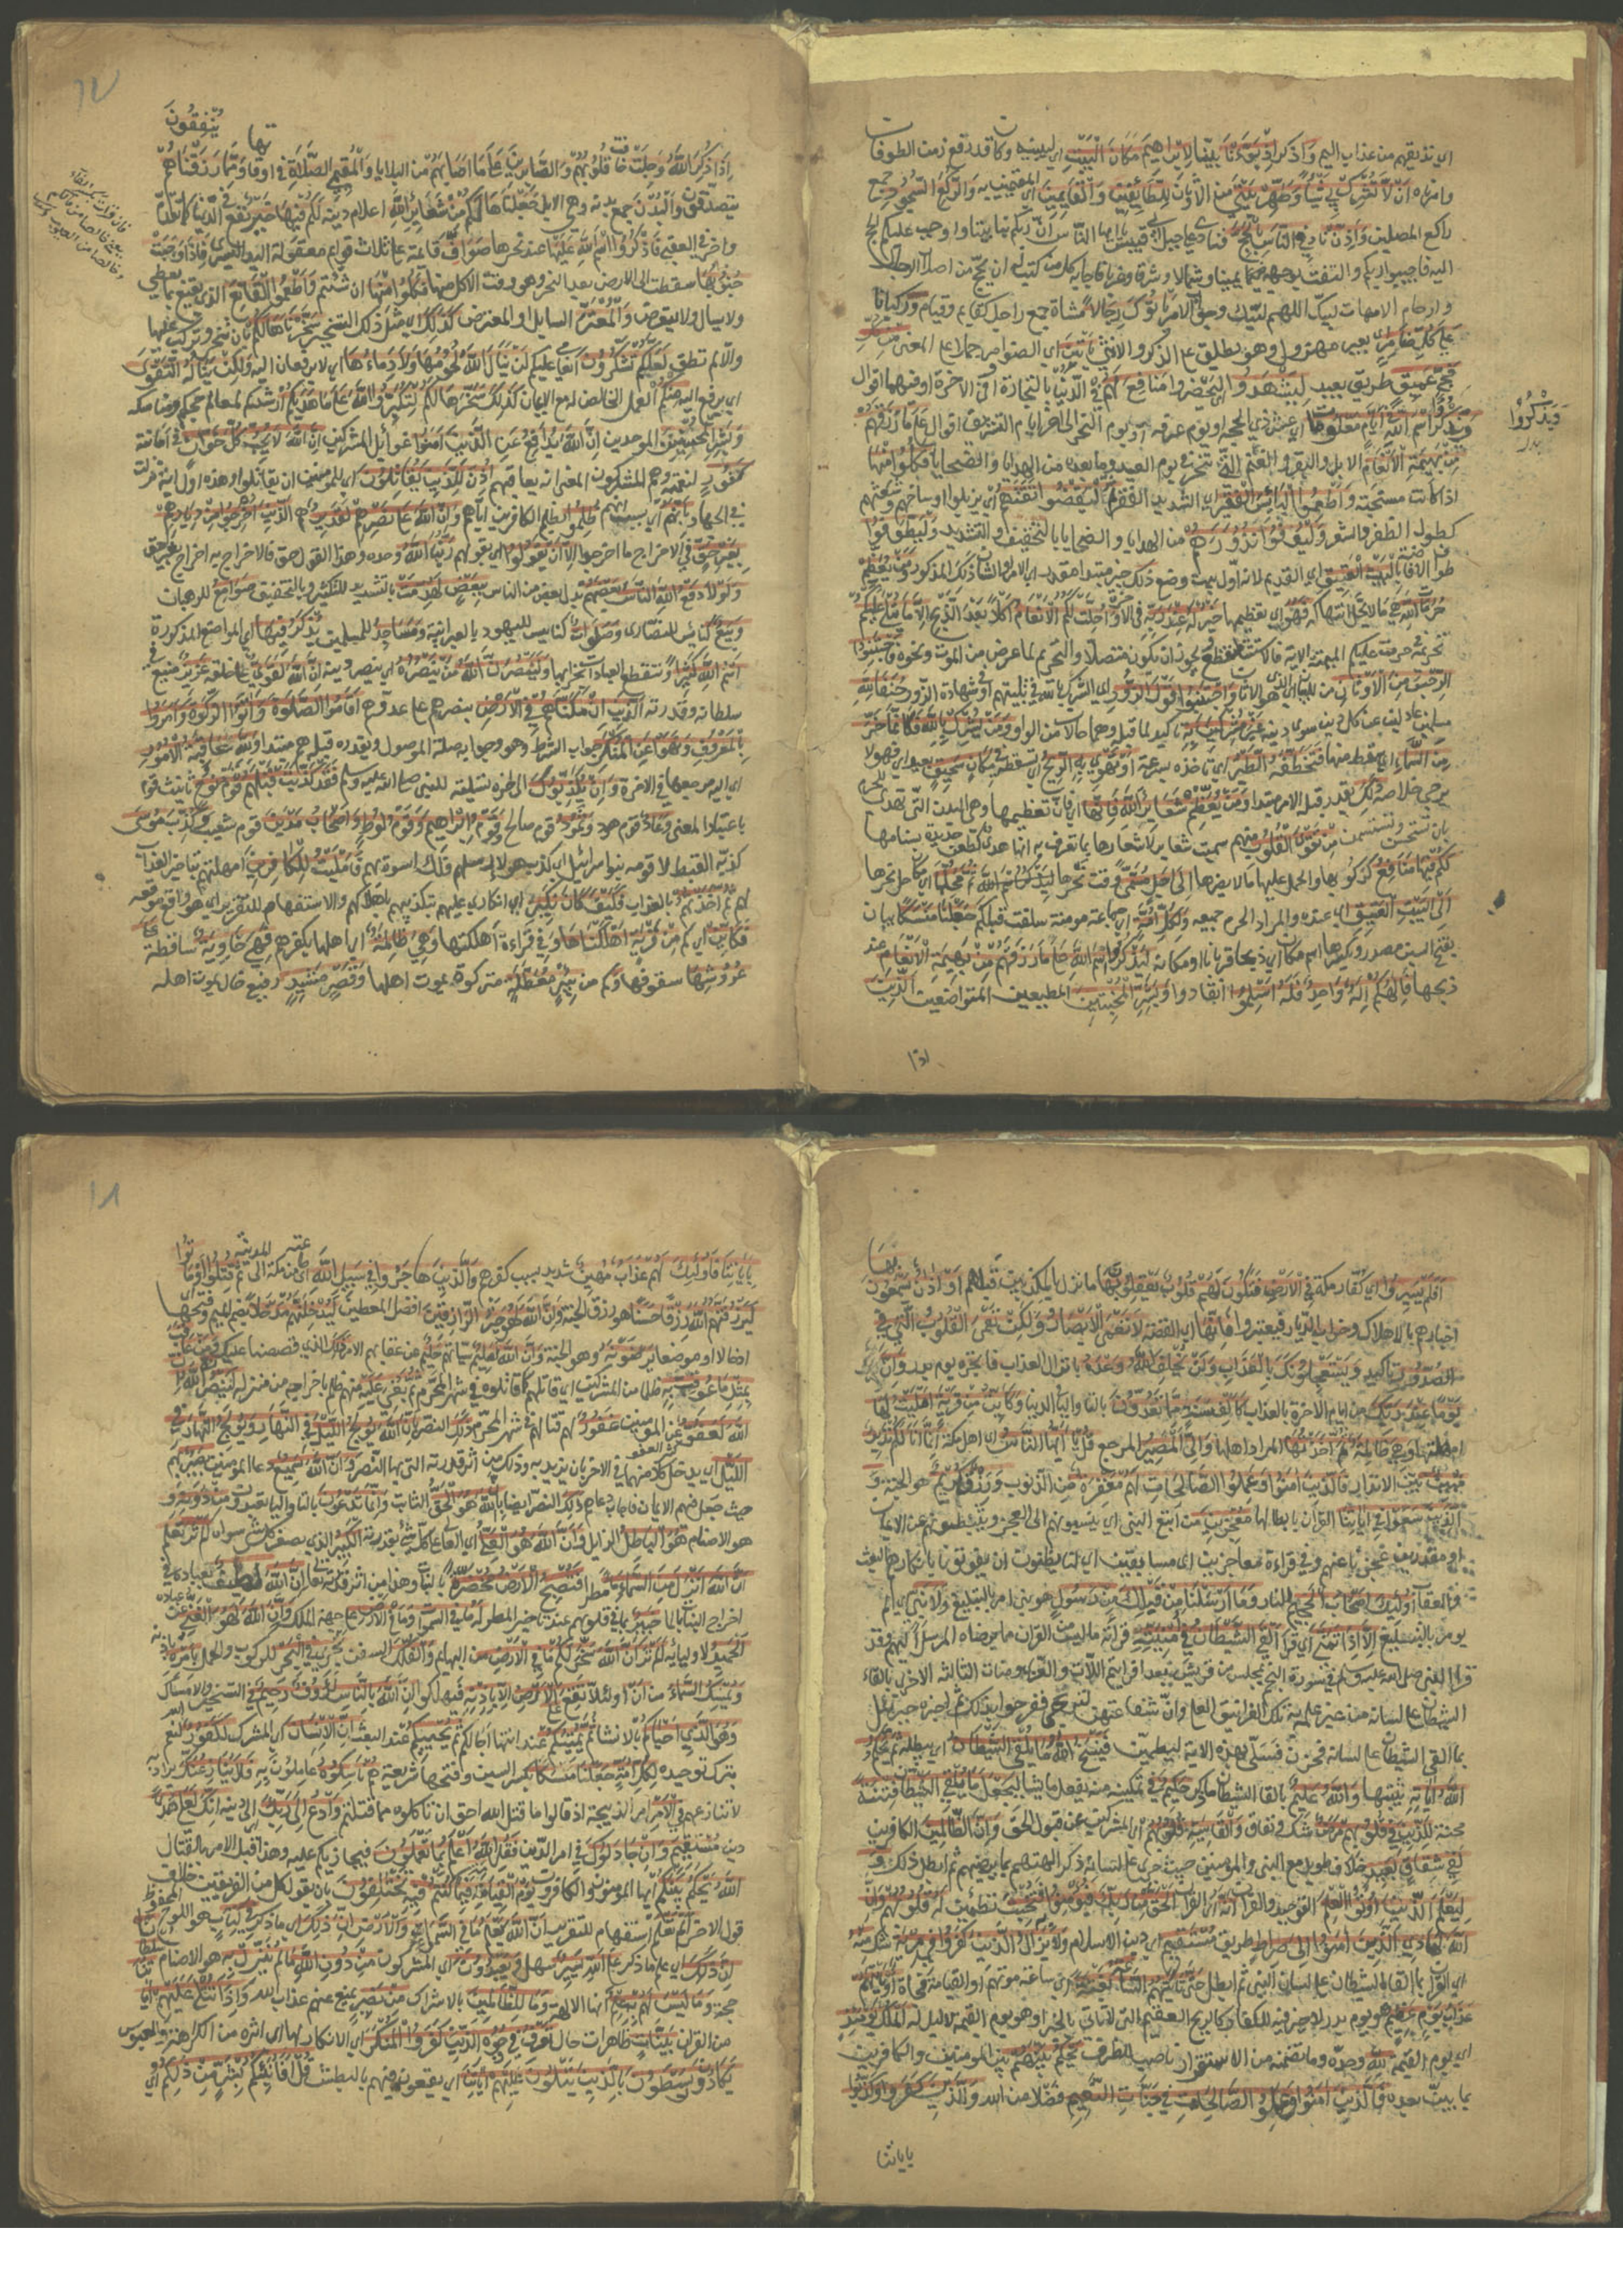 اي نذيقهم من عذاب اليم واذكر اذ بوأنا بينا لابراهيم مكان البيت اي ليبنيه وكان قد رفع زمن الطوفان
وامرناه ان لا تشرك بي شيأ وطهر بيتي من الاوثان للطائفين والقائمين اي المقيمين به والركع السجود جمع
راكع المصلين واذن ناد في الناس بالحج فنادى على جبل ابي قبيس يا ايها الناس ان ربكم بنى بيتا واوجب عليكم الحج
اليه فاجيبوا ربكم والتفت بوجهه يمينا وشمالا وشرقا وغربا فاجابه كل من كتب له ان يحج من اصلاب الرجال
وارحام الامهات لبيك اللهم لبيك وجواب الامر يأتوك رجالا مشاة جمع راجل كقايم وقيام وركبانا
على كل ضامر اي بعير مهزول وهو يطلق على الذكر والانثى يأتين اي الضوامر حملا على المعنى من كل
فج عميق طريق بعيد ليشهدوا اي يحضروا منافع لهم في الدنيا بالتجارة او في الاخرة او فيهما اقوال
ويذكروا اسم الله في ايام معلومات اي عشر ذي الحجة او يوم عرفة او يوم النحر الى اخر ايام التشريق اقوال على ما رزقهم
من بهيمة الانعام الابل والبقر والغنم التي تنحر في يوم العيد وما بعده من الهدايا والضحايا فكلوا منها
اذا كانت مستحبة واطعموا البائس الفقير اي الشديد الفقر ثم ليقضوا تفثهم اي يزيلوا اوساخهم وشعثهم
كطول الظفر والشعر وليوفوا نذورهم من الهدايا والضحايا بالتخفيف والتشديد وليطوفوا
طواف الافاضة بالبيت العتيق اي القديم لانه اول بيت وضع ذلك خبر مبتدا مقدر اي الامر او الشان ذلك المذكور ومن يعظم
حرمات الله هي ما لا يحل انتهاكه فهو اي تعظيمها خير له عند ربه في الاخرة واحلت لكم الانعام اكلا بعد الذبح الا ما يتلى عليكم
تحريمه في حرمت عليكم الميتة الاية فالاستثناء منقطع ويجوز ان يكون متصلا والتحريم لما عرض من الموت ونحوه فاجتنبوا
الرجس من الاوثان من للبيان اي الذي هو الاوثان واجتنبوا قول الزور اي الشرك بالله في تلبيتهم او شهادة الزور حنفاء لله
مسلمين عادلين عن كل دين سوى دينه غير مشركين به تاكيد لما قبله وهما حالان من الواو ومن يشرك بالله فكانما خر
من السماء اي سقط منها فتخطفه الطير اي تاخذه بسرعة او تهوي به الريح اي تسقطه في مكان سحيق بعيد اي فهو لا
يرجى خلاصه ذلك يقدر قبله الامر مبتدا ومن يعظم شعاير الله فانها اي فان تعظيمها وهي البدن التي تهدى للحرم
بان تستحسن وتستسمن من تقوى القلوب منهم سميت شعاير لاشعارها بما تعرف به انها هدي كطعن حديدة بسنامها
لكم فيها منافع كركوبها والحمل عليها ما لا يضرها الى اجل مسمى وقت نحرها ثم محلها اي مكان حل نحرها
الى البيت العتيق اي عنده والمراد الحرم جميعه ولكل امة اي جماعة مومنة سلفت قبلكم جعلنا منسكا
بفتح السين مصدر وبكسرها اسم مكان اي ذبحا قربانا او مكانه ليذكروا اسم الله على ما رزقهم من بهيمة الانعام عند
ذبحها فالهكم اله واحد فله اسلموا انقادوا وبشر المخبتين المطيعين المتواضعين الذين
ويذكروا
اذا
١٧
ينفقون
اذا ذكر الله وجلت خافت قلوبهم والصابرين على ما اصابهم من البلايا والمقيمي الصلاة في اوقاتها ومما رزقناهم
يتصدقون والبدن جمع بدنة وهي الابل جعلناها لكم من شعائر الله اعلام دينه لكم فيها خير نفع في الدنيا كما تقدم
واجر في العقبى فاذكروا اسم الله عليها عند نحرها صواف قائمة على ثلاث قوايم معقولة اليد اليسرى فاذا وجبت
جنوبها سقطت الى الارض بعد النحر وهو وقت الاكل منها فكلوا منها ان شئتم واطعموا القانع الذي يقنع بما يعطى
ولا يسال ولا يتعرض والمعتر السايل او المعترض كذلك اي مثل ذلك التسخير سخرناها لكم بان تنحر وتركب
والا لم تطق لعلكم تشكرون انعامي عليكم لن ينال الله لحومها ولا دماءها اي لا يرفعان اليه ولكن يناله التقوى منكم
اي يرفع اليه منكم العمل الخالص له مع الايمان كذلك سخرها لكم لتكبروا الله على ما هديكم ارشدكم لمعالم دينكم ومناسك حجكم
وبشر المحسنين الموحدين ان الله يدافع عن الذين امنوا غوائل المشركين ان الله لا يحب كل خوان في امانته
كفور لنعمته وهم المشركون المعنى انه يعاقبهم اذن للذين يقاتلون اي للمومنين ان يقاتلوا وهذه اول اية نزلت
في الجهاد بانهم اي بسبب انهم ظلموا بظلم الكافرين اياهم وان الله على نصرهم لقدير هم الذين اخرجوا من ديارهم
بغير حق في الاخراج ما اخرجوا الا ان يقولوا اي بقولهم ربنا الله وحده وهذا القول حق فالاخراج به اخراج بغير حق
ولولا دفع الله الناس بعضهم بدل بعض من الناس ببعض لهدمت بالتشديد للتكثير وبالتخفيف صوامع للرهبان
وبيع كنائس للنصارى وصلوات كنايس لليهود بالعبرانية ومساجد للمسلمين يذكر فيها اي المواضع المذكورة
اسم الله كثيرا وتنقطع العبادات بخرابها ولينصرن الله من ينصره اي ينصر دينه ان الله لقوي على خلقه عزيز منيع في
سلطانه وقدرته الذين ان مكناهم في الارض بنصرهم على عدوهم اقاموا الصلوة واتوا الزكوة وامروا
بالمعروف ونهوا عن المنكر جواب الشرط وهو وجوابه صلة الموصول ويقدر قبله هم مبتدا ولله عاقبة الامور
اي اليه مرجعها في الاخرة وان يكذبوك الى اخره تسلية للنبي صلى الله عليه وسلم فقد كذبت قبلهم قوم نوح تانيث قوم
باعتبار المعنى وعاد قوم هود وثمود قوم صالح وقوم ابراهيم وقوم لوط واصحاب مدين قوم شعيب وكذب موسى
كذبه القبط لا قومه بنوا اسرائيل اي كذب هولاء رسلهم فلك اسوة بهم فامليت للكافرين امهلتهم بتاخير العذاب
لهم ثم اخذتهم بالعذاب فكيف كان نكير اي انكاري عليهم بتكذيبهم باهلاكهم والاستفهام للتقرير اي هو واقع موقعه
فكاين اي كم من قرية اهلكتها وفي قراءة اهلكناها وهي ظالمة اي اهلها بكفرهم فهي خاوية ساقطة على
عروشها سقوفها وكم من بئر معطلة متروكة بموت اهلها وقصر مشيد رفيع خال بموت اهله
افلم يسيروا اي كفار مكة في الارض فتكون لهم قلوب يعقلون بها ما نزل بالمكذبين قبلهم او اذان يسمعون بها
اخبارهم بالاهلاك وخراب الديار فيعتبروا فانها اي القصة لا تعمى الابصار ولكن تعمى القلوب التي في
الصدور تاكيد ويستعجلونك بالعذاب ولن يخلف الله وعده بانزال العذاب فانجزه يوم بدر وان
يوما عند ربك من ايام الاخرة بالعذاب كالف سنة مما تعدون بالتاء والياء في الدنيا وكاين من قرية امليت لها
وهي ظالمة ثم اخذتها المراد اهلها والي المصير المرجع قل يا ايها الناس اي اهل مكة انما انا لكم نذير
مبين بين الانذار فالذين امنوا وعملوا الصالحات لهم مغفرة من الذنوب ورزق كريم هو الجنة و
الذين سعوا في اياتنا القران بابطالها معجزين من اتبع النبي اي ينسبونهم الى العجز ويثبطونهم عن الايمان
او مقدرين عجزنا عنهم وفي قراءة معاجزين اي مسابقين اي لنا يظنون ان يفوتونا بانكارهم البعث
والعقاب اولئك اصحاب الجحيم النار وما ارسلنا من قبلك من رسول هو نبي امر بالتبليغ ولا نبي اي لم
يومر بالتبليغ الا اذا تمنى اي قرأ القى الشيطان في امنيته قرأته ما ليس من القران مما يرضاه المرسل اليهم وقد
قرا النبي صلى الله عليه وسلم في سورة النجم بمجلس من قريش بعد افرايتم اللات والعزى ومنات الثالثة الاخرى بالقاء
الشيطان على لسانه من غير علمه به تلك الغرانيق العلى وان شفاعتهن لترتجى ففرحوا بذلك ثم اخبره جبريل
بما القى الشيطان على لسانه فحزن فسلي بهذه الاية ليطمئن فينسخ الله ما يلقي الشيطان اي يبطله ثم يحكم
الله اياته يثبتها والله عليم بالقاء الشيطان ما ذكر حكيم في تمكينه منه يفعل ما يشا ليجعل ما يلقي الشيطان فتنة
محنة للذين في قلوبهم مرض شك ونفاق والقاسية قلوبهم اي المشركين عن قبول الحق وان الظالمين الكافرين
لفي شقاق بعيد خلاف طويل مع النبي والمومنين حيث جرى على لسانه ذكر الهتهم بما يرضيهم ثم ابطل ذلك و
ليعلم الذين اوتوا العلم التوحيد والقران انه اي القران الحق من ربك فيؤمنوا به فتخبت تطمئن له قلوبهم وان
الله لهادي الذين امنوا الى صراط طريق مستقيم اي دين الاسلام ولا يزال الذين كفروا في مرية شك منه
اي القران بما القاه الشيطان على لسان النبي ثم ابطل حتى تاتيهم الساعة بغتة اي ساعة موتهم او القيامة فجاة او ياتيهم
عذاب يوم عقيم هو يوم بدر لا خير فيه للكفار كالريح العقيم التي لا تاتي بالخير او هو يوم القيمة لا ليل له الملك يومئذ
اي يوم القيمة لله وحده وما تضمنه من الاستقرار ناصب للظرف يحكم بينهم بين المومنين والكافرين
بما بين بعده فالذين امنوا وعملوا الصالحات في جنات النعيم فضلا من الله والذين كفروا وكذبوا
باياتنا
١٨
باياتنا فاولئك لهم عذاب مهين شديد بسبب كفرهم والذين هاجروا في سبيل الله اي طاعته من مكة الى المدينة ثم قتلوا او ماتوا
ليرزقنهم الله رزقا حسنا هو رزق الجنة وان الله لهو خير الرازقين افضل المعطين ليدخلنهم مدخلا بضم الميم وفتحها
ادخالا او موضعا يرضونه وهو الجنة وان الله لعليم بنياتهم حليم عن عقابهم الامر ذلك الذي قصصنا عليك ومن عاقب
بمثل ما عوقب به ظلما من المشركين اي قاتلهم كما قاتلوه في شهر المحرم ثم بغي عليه منهم اي ظلم باخراجه من منزله لينصرنه الله ان
الله لعفو عن المومنين غفور لهم قتالهم في شهر المحرم ذلك النصر بان الله يولج الليل في النهار ويولج النهار في
الليل اي يدخل كلا منهما في الاخر بان يزيد به وذلك من اثر قدرته التي بها النصر وان الله سميع دعا المومنين بصير بهم
حيث جعل فيهم الايمان فاجاب دعاهم ذلك النصر ايضا بان الله هو الحق الثابت وانما تدعون بالتا واليا يعبدون من دونه
هو الاصنام هو الباطل الزايل وان الله هو العلي اي العالي على كل شئ بقدرته الكبير الذي يصغر كل شئ سواه الم تر تعلم
ان الله انزل من السماء ماء مطرا فتصبح الارض مخضرة بالنبات وهذا من اثر قدرته تعالى ان الله لطيف بعباده في
اخراج النبات بالماء خبير بما في قلوبهم عند تاخير المطر له ما في السموات وما في الارض على جهة الملك وان الله لهو الغني عن عباده
الحميد لاوليائه الم تر ان الله سخر لكم ما في الارض من البهايم والفلك السفن تجري في البحر للركوب والحمل بامره باذنه
ويمسك السماء من ان او لئلا تقع على الارض الا باذنه فتهلكوا ان الله بالناس لرؤف رحيم في التسخير والامساك
وهو الذي احياكم بالانشاء ثم يميتكم عند انتهاء اجالكم ثم يحييكم عند البعث ان الانسان اي المشرك لكفور لنعم الله
بتركه توحيده لكل امة جعلنا منسكا بكسر السين وفتحها شريعة هم ناسكوه عاملون به فلا ينازعنك يراد به
لا تنازعهم في الامر امر الذبيحة اذ قالوا ما قتل الله احق ان تاكلوه مما قتلتم وادع الى ربك الى دينه انك لعلى هدى
دين مستقيم وان جادلوك في امر الدين فقل الله اعلم بما تعملون فيجازيكم عليه وهذا قبل الامر بالقتال
الله يحكم بينكم ايها المومنون والكافرون يوم القيامة فيما كنتم فيه تختلفون بان يقول كل من الفريقين خلاف
قول الاخر الم تعلم استفهام للتقرير ان الله يعلم ما في السماء والارض ان ذلك اي ما ذكر في كتاب هو اللوح المحفوظ
ان ذلك اي علم ما ذكر على الله يسير سهل ويعبدون اي المشركون من دون الله ما لم ينزل به هو الاصنام سلطانا
حجة وما ليس لهم به علم انها الهة وما للظالمين بالاشراك من نصير يمنع عنهم عذاب الله واذا تتلى عليهم اياتنا
من القران بينات ظاهرات حال تعرف في وجوه الذين كفروا المنكر اي الانكار لها اي اثره من الكراهة والعبوس
يكادون يسطون بالذين يتلون عليهم اياتنا اي يقعون فيهم بالبطش قل افانبئكم بشر من ذلكم اي